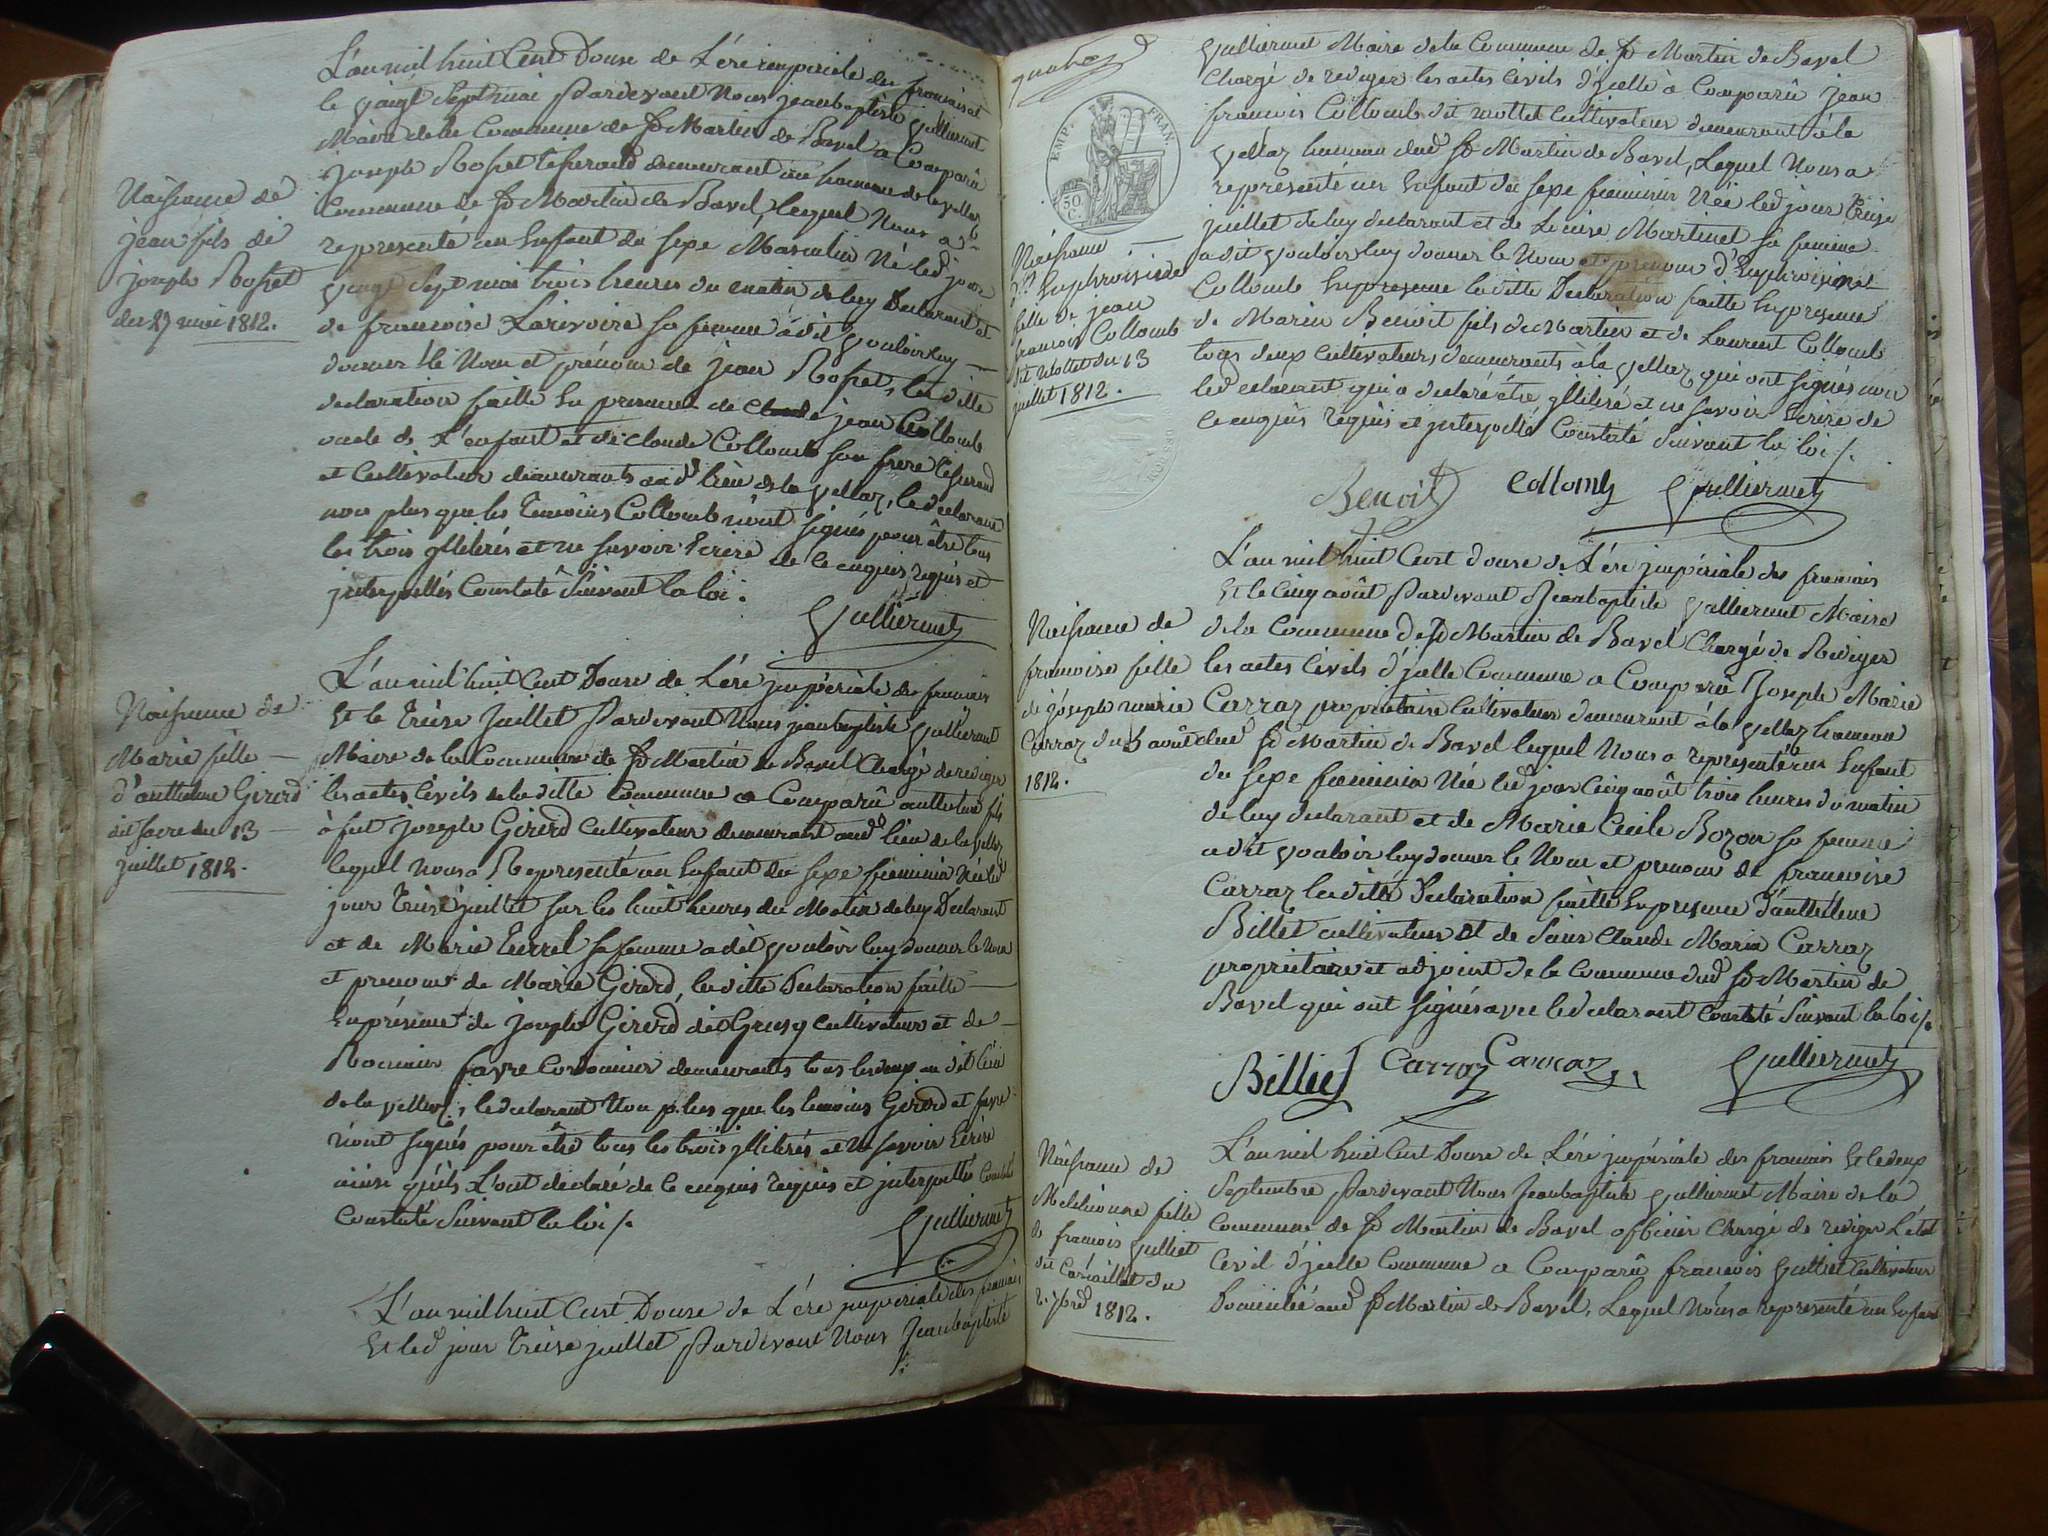 L'an mil huit Cent Douse de L'ére impériale des francais et
le vaingt Sept mai Pardevant Nous jeanbaptiste Gulliermet
Maire de la Commune de St Martin de Bavel a Comparû
joseph Rosset tisserand demeurant au hameau de la vellaz
Commune de St Martin de Bavel, lequel Nous a
représenté un Enfant du sexe Masculin Né led jour
vaingt Sept mai trois heures du matin de luy Declarant et
de francoise Larivoire sa femme a dit vouloir luy
donner le Nom et prénom de jean Rosset, la ditte
declaration faitte En presence de jean Collomb
oncle de L'enfant et de claude Collomb son frere tisserand
et Cultivateur demeurants aud lieu de la vellaz, le declarant
non plus que les Temoins Collomb n'ont signés pour être tous
les trois yllitérés et ne savoir Ecrire de ce enquis requis et
jnterpellés Constaté Suivant la loi.
Gulliermet
Naissance de
jean fils de
joseph Rosset
du 27 mai 1812.
L'an mil huit Cent Douse de L'ére jmpériale des francais
Et le Treise Juillet Pardevant Nous jeanbaptiste Gulliermet
Maire de la Commune de St Martin de Bavel Chargé de rediger
les actes Civils de la ditte Commune a Comparû anthelme fils
à fut Joseph Girerd Cultivateur demeurant aud lieu de la vellaz
lequel nous a Représenté un Enfant du sexe féminin Née led
jour Treise juillet sur les huit heures du Matin de luy Declarant
et de Marie Turrel sa femme a dit vouloir luy donner le Nom
et prenom de Marie Girerd, la ditte Declaration faitte
En présence de Joseph Girerd dit Grusy Cultivateur et de
favre Cordonnier demeurants tous les deux au dit Lieu
de la vellaz, le declarant Non plus que les temoins Girerd et favre
n'ont signés pour être tous les trois yllitérés et ne savoir Ecrire
ainsi qu'ils L'ont déclaré de ce enquis requis et jnterpellés
Constaté Suivant la loi /.
Gulliermet
Naissance de
Marie fille
d'anthelme Girerd
du 13
juillet 1812.
L'an mil huit Cent Douse de L'ére jmpériale des francais
Et led jour Treise juillet Pardevant Nous Jeanbaptiste
Gulliermet Maire de la Commune de St Martin de Bavel
Chargé de rediger les actes Civils d'jcelle à Comparû jean
francois Collomb dit mollet Cultivateur demeurant à la
vellaz hameau dud St Martin de Bavel, Lequel Nous a
représenté un Enfant du sexe feminin Née led jour Treise
juillet de luy declarant et de Louise Martinet sa femme
a dit vouloir luy donner le Nom et prenom d'Euphroisine
Collomb Enpresence la ditte Declaration faitte Enpresence
de Marin Benoit fils de Martin et de Laurent Collomb
tous deux Cultivateurs demeurants à la vellaz qui ont signés non
led eclarant qui a declaré être yllitéré et ne savoir Ecrire de
ce enquis requis et jnterpellé Constaté Suivant la loi /.
Benoit Collomb Gulliermet
EMP. FRAN.
50
C.
Naissance
d'Euphroisine
fille de jean
francois Collomb
dit Mollet du 13
juillet 1812.
L'an mil huit Cent douse de L'ére jmpériale des francais
Et le Cinq août Pardevant Jeanbaptiste Gulliermet Maire
de la Commune de St Martin de Bavel Chargé de Rediger
les actes Civils d'jcelle Commune a Comparû Joseph Marie
Carraz propriétaire Cultivateur demeurant à la vellaz hameau
dud St Martin de Bavel lequel Nous a representé un Enfant
du sexe feminin Née led jour Cinq août trois heures du matin
de luy declarant et de Marie Cecile Bozon sa femme
a dit vouloir luy donner le Nom et prenom de francoise
Carraz la ditte Declaration faitte En presence d'anthelme
Billet cultivateur et de Sieur Claude Marin Carraz
propriétaire et adjoint de la Commune dud St Martin de
Bavel qui ont signés avec le declarant Constaté Suivant la loi /.
Billiet Carraz Carraz Gulliermet
Naissance de
francoise fille
de joseph marie
Carraz du 5 août
1812.
L'an mil huit Cent Douse de L'ére jmpériale des francais Et le deux
Septembre Pardevant Nous Jeanbaptiste Gulliermet Maire de la
Commune de St Martin de Bavel officier Chargé de rediger L'etat
Civil d'jcelle Commune a Comparû francois Gulliet Cultivateur
Domicilié aud St Martin de Bavel, Lequel Nous a representé un Enfant
Naissance de
fille
de francois Gulliet
dit du
2. 7bre 1812.